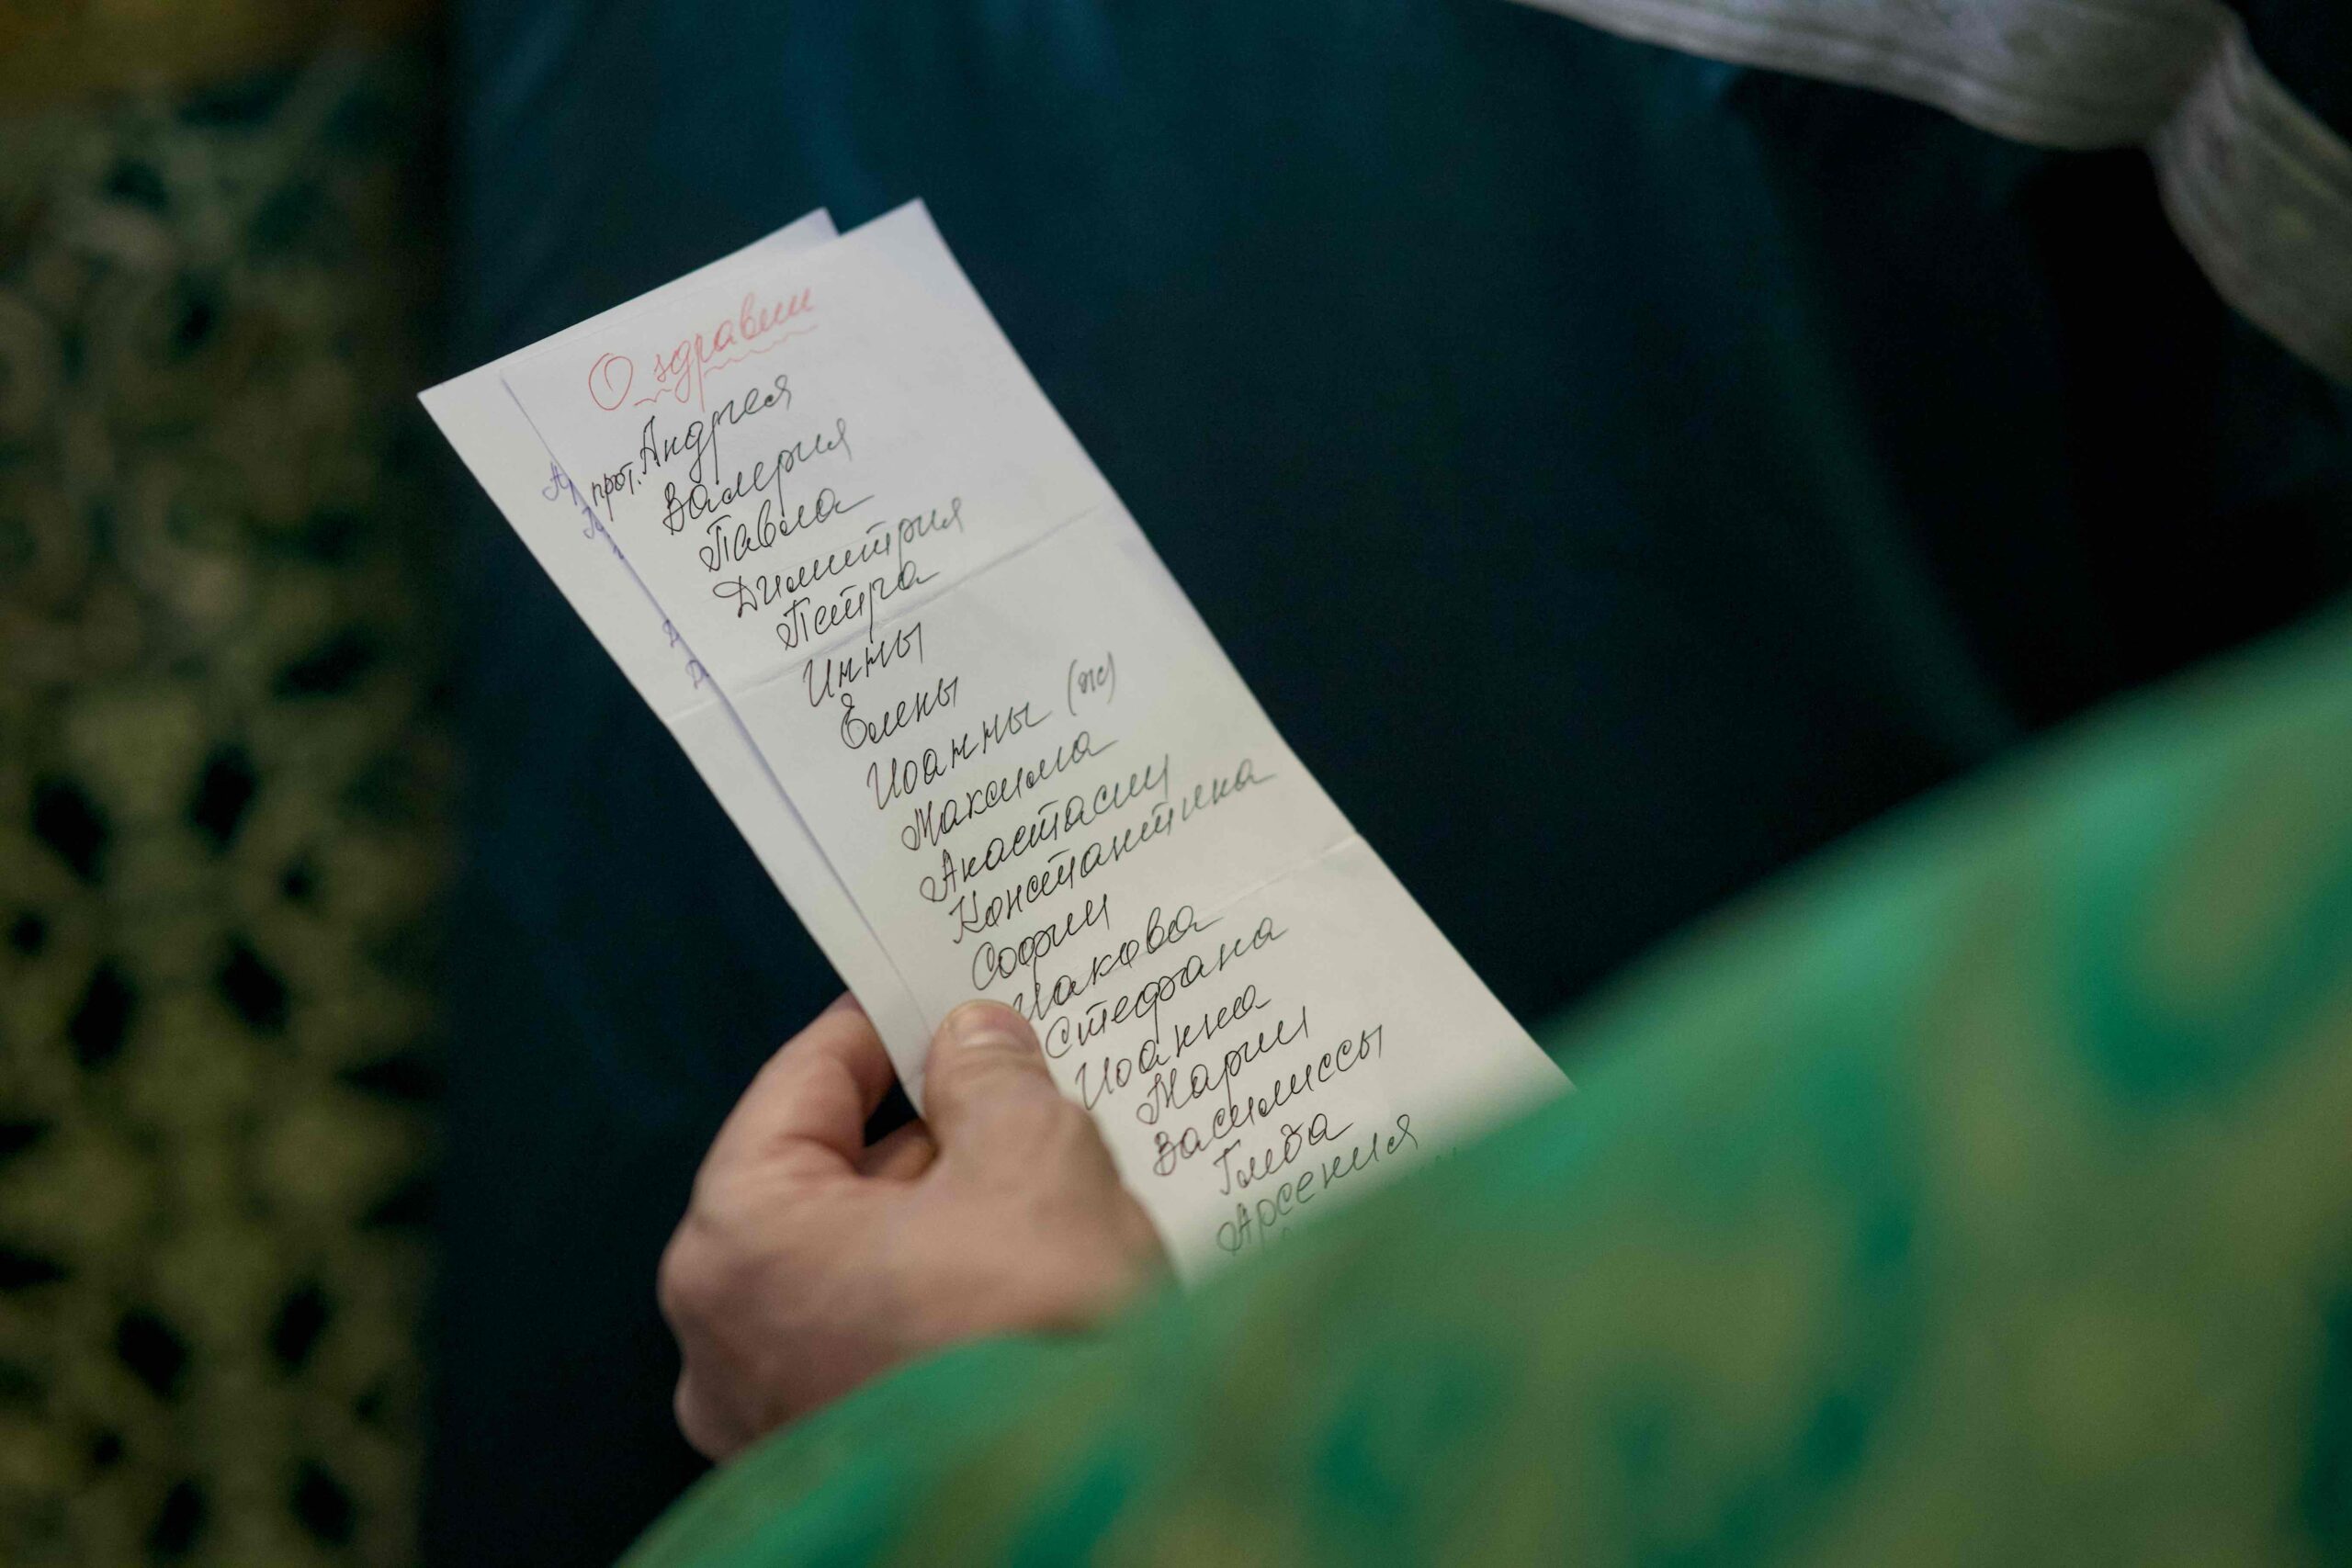 О здравии
прот. Андрея
Валерия
Павла
Димитрия
Петра
Инны
Елены
Иоанны
Максима
Анастасии
Константина
Софии
Иакова
Стефана
Иоанна
Марии
Василиссы
Глеба
Арсения